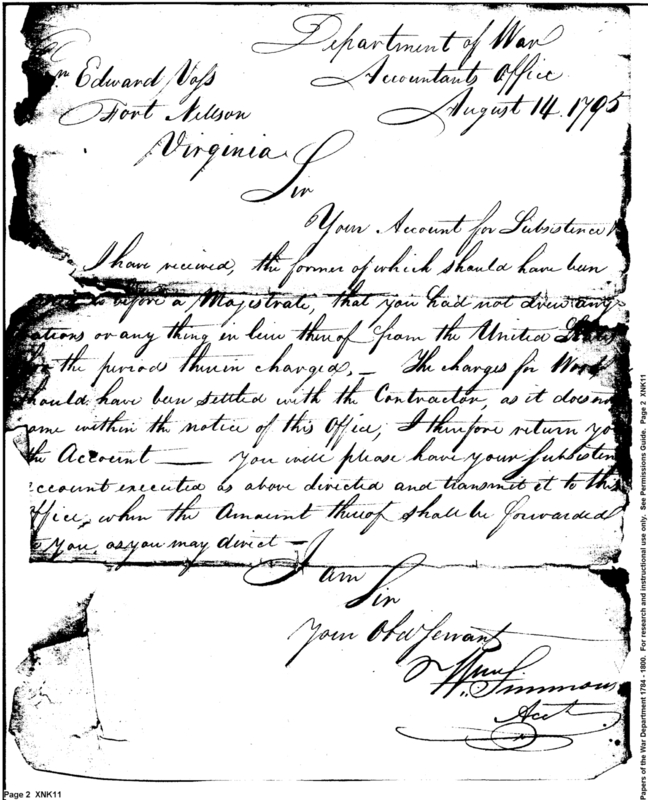 Department of War
Edward Voss Accountants Office
Fort Nellson August 14. 1795
Virginia
Sir
Your Account for Subsistence
I have received, the former of which should have been
before a Majestrate, that you had not drew any
ations or any thing in lieu thereof from the United States
the period therein charged. — The charges for Wood
hould have been settled with the Contractor, as it does no
ome within the notice of this Office, I therefore return yo
the Account — you will please have your Subsisten
ccount executed as above directed and transmit it to this
ffice, when the Amount thereof shall be forwarded
you, as you may direct —
I am
Sir
Your Obd Servant
Wm Simmons
Acct
Page 2 XNK11
Papers of the War Department 1784 - 1800. For research and instructional use only. See Permissions Guide. Page 2 XNK11